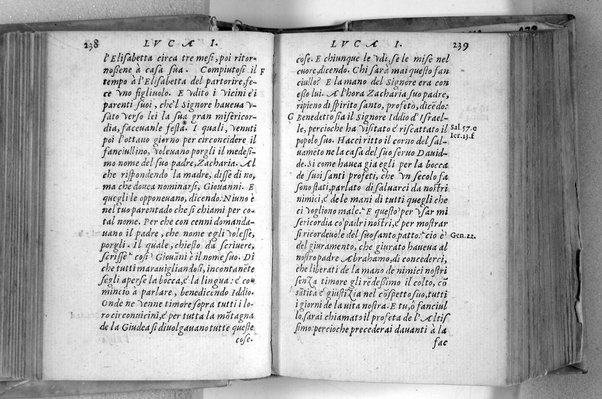 238 LVCA I.
l'Elisabetta circa tre mesi, poi ritor-
nossene à casa sua. Compiutosi il F
tempo à l'Elisabetta del partorire, fe-
ce vno figliuolo. E vdito i vicini e i
parenti suoi, che'l Signore haueua v-
sato verso lei la sua gran misericor-
dia, faceuanle festa. I quali, venuti
poi l'ottauo giorno per circoncidere il
fanciullino, voleuano porgli il medesi-
mo nome del suo padre, Zacharia. Al
che rispondendo la madre, disse di no,
ma che douea nominarsi, Giouanni. E
quegli le opponeuano, dicendo: Niuno è
nel tuo parentado che si chiami per co-
tal nome. Per che con cenni domanda-
uano il padre, che nome egli volesse,
porgli. Il quale, chiesto da scriuere,
scrisse così Giouãni è il nome suo. Di
che tutti marauigliandosi, incontanẽte
segli aperse la bocca, e la lingua: e co-
minciò à parlare, benedicendo Iddio.
Onde ne venne timore sopra tutti i lo-
ro circonuicini, e per tutta la mõtagna
de la Giudea si diuolgauano tutte queste
cose.
LVCA I. 239
cose. E chiunque le vdì, se le mise nel
cuore, dicendo. Chi sarà mai questo fan-
ciullo? E la mano del Signore era con
esso lui. A l'hora Zacharia suo padre,
ripieno di spirito santo, profetò, dicẽdo:
G Benedetto sia il Signore Iddio d'Israel-
le, percioche ha visitato e riscattato il
popolo suo. Hacci ritto il corno del sal-
uamẽto ne la casa del suo seruo Dauid-
de. Si come hauea gia egli per la bocca
de suoi santi profeti, che vn secolo fa
sono stati, parlato di saluarci da nostri
nimici, e de le mani di tutti quegli che
ci vogliono male. E questo per vsar mi
sericordia co'padri nostri, e per mostrar
si ricordeuole del suo santo patto: ciò è
del giuramento, che giurato haueua al
nostro padre Abrahamo, di concederci,
che liberati de la mano de nimici nostri
senza timore gli rẽdessimo il colto, cõ
sãtità e giustizia nel cõspetto suo, tutti
i giorni de la vita nostra. E tu, ò fanciul
lo, sarai chiamato il profeta de l'Altis
simo: percioche precederai dauanti à la
fac
Sal. 57.
Gen. 22.